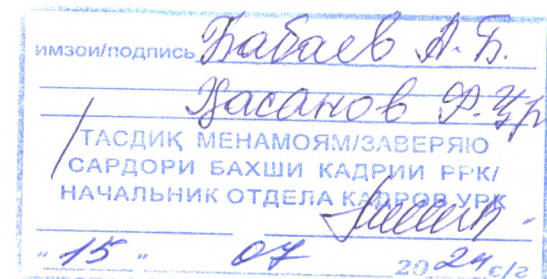 имзои/подпись Бабаев А.Б.
Хасанов Ф.
ТАСДИҚ МЕНАМОЯМ/ЗАВЕРЯЮ
САРДОРИ БАХШИ КАДРИИ РРК/
НАЧАЛЬНИК ОТДЕЛА КАДРОВ УРК
"15" 07 2024 с/г